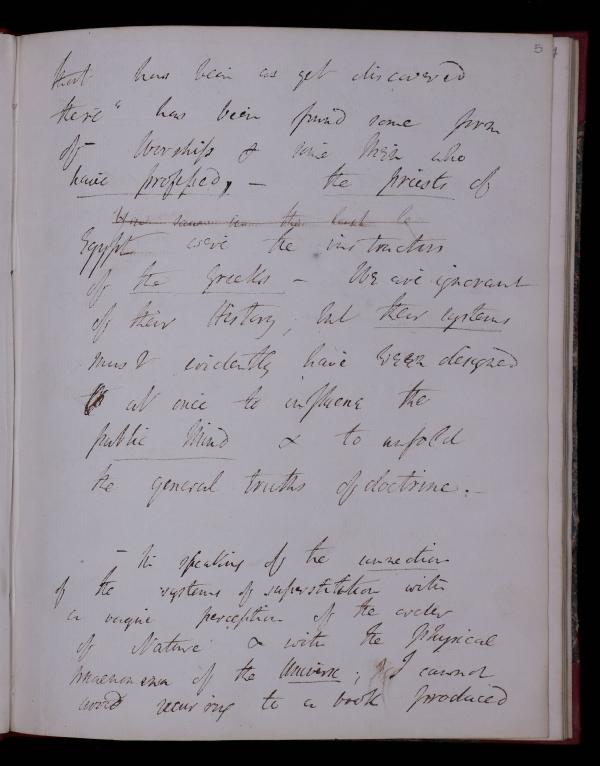 5
that has been as yet discovered
there" has been found some form
of worship & some Men who
have professed, – the priests of
Egypt were the instructors
of the Greeks – We are ignorant
of their History, but their systems
must evidently have been designed
at once to influence the
public Mind & to unfold
the general truths of doctrine. –
– In speaking of the connection
of the systems of superstition with
a vague perception of the order
of Nature & with the physical
phaenomena of the Universe; I cannot
avoid recurring to a book produced